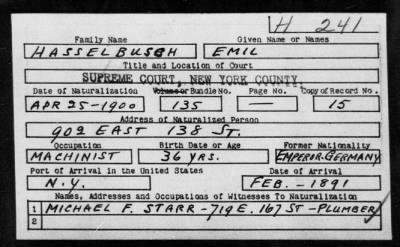 H 241
Family Name Given Name or Names
HASSELBUSCH EMIL
Title and Location of Court
SUPREME COURT, NEW YORK COUNTY.
Date of Naturalization Volume or Bundle No. Page No. Copy of Record No.
APR 25-1900 135 — 15
Address of Naturalized Person
902 EAST 138 ST.
Occupation Birth Date or Age Former Nationality
MACHINIST 36 YRS. EMPEROR-GERMANY
Port of Arrival in the United States Date of Arrival
N.Y. FEB. - 1891
Names, Addresses and Occupations of Witnesses To Naturalization
1 MICHAEL F. STARR - 719 E. 167 ST - PLUMBER
2